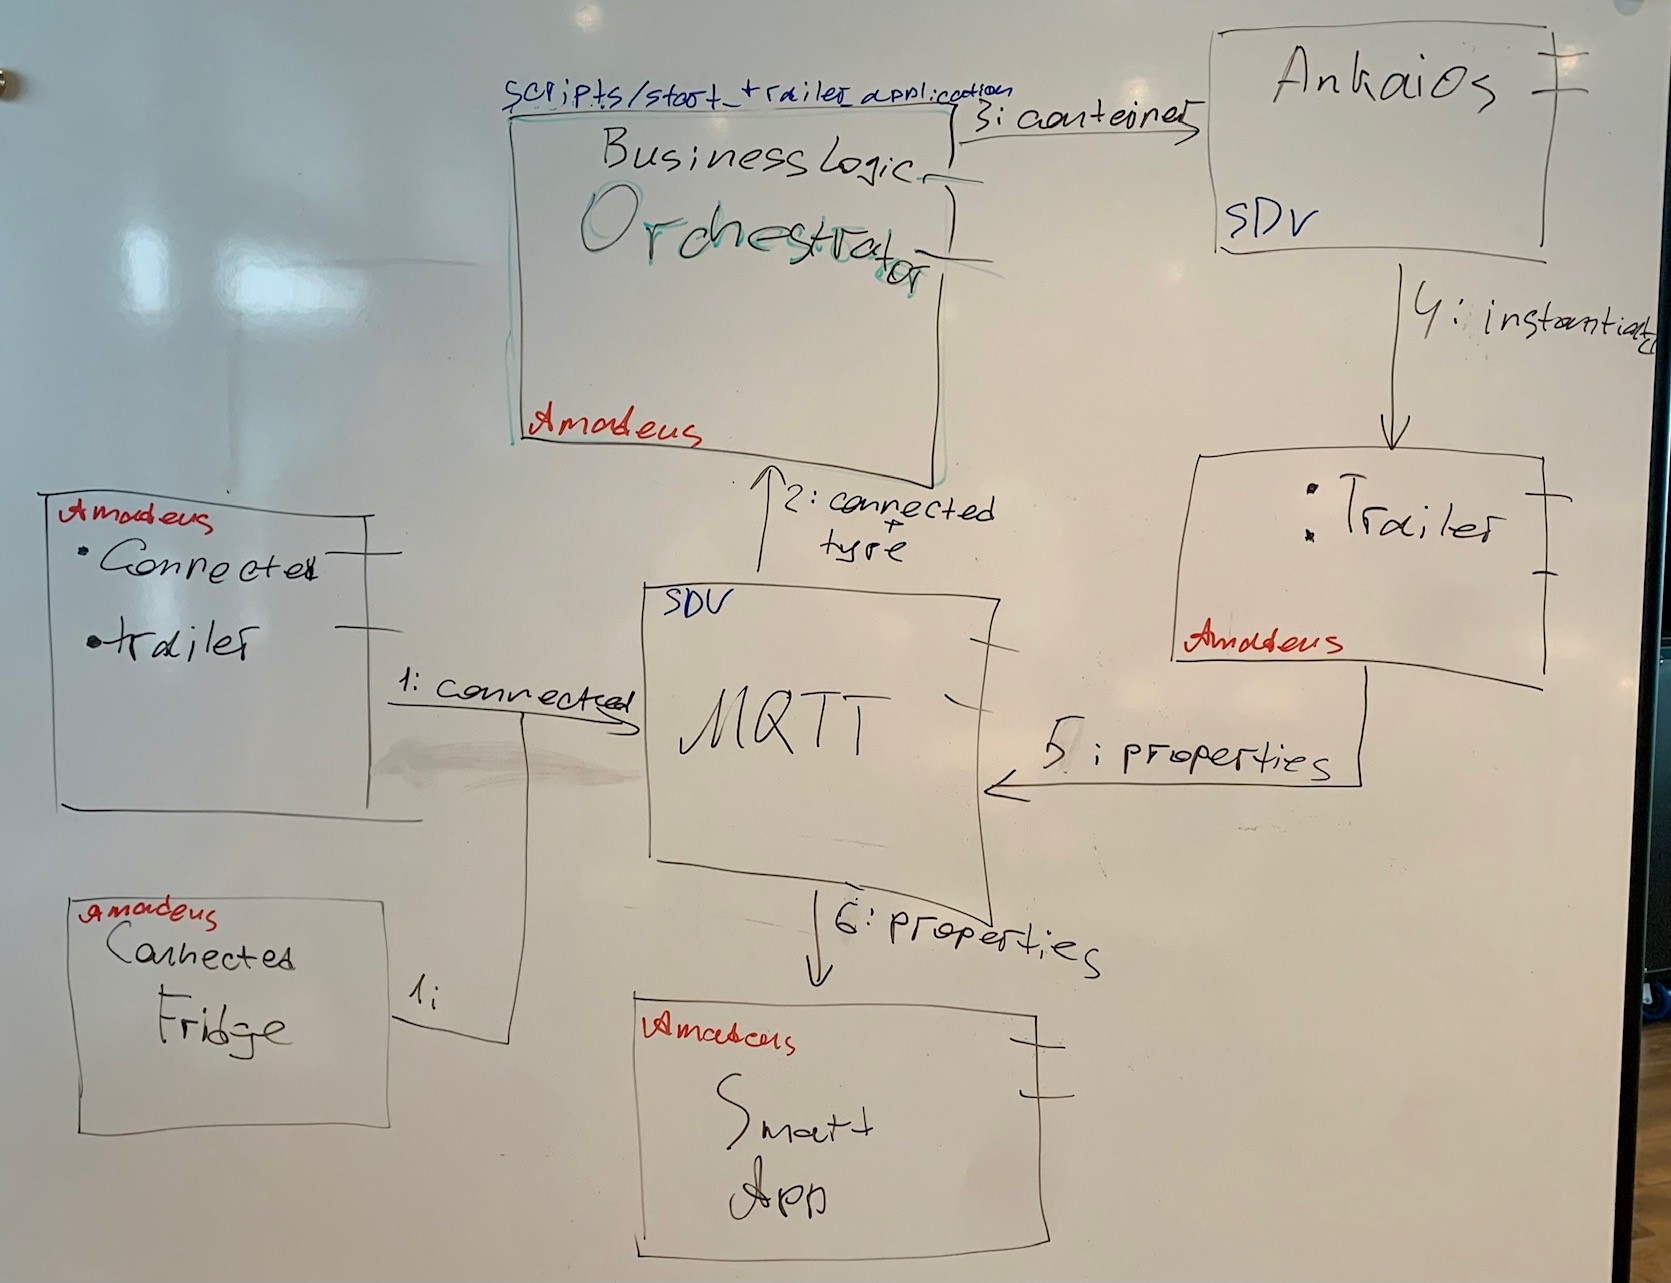 scripts/start_trailer_application
Business Logic
Orchestrator
Amadeus
3: container
Ankaios
SDV
4: instantiate
: Trailer
Amadeus
2: connected
+
type
Amadeus
• Connected
• trailer
1: connected
SDV
MQTT
5: properties
Amadeus
Connected
Fridge
1:
6: properties
Amadeus
Smart
App